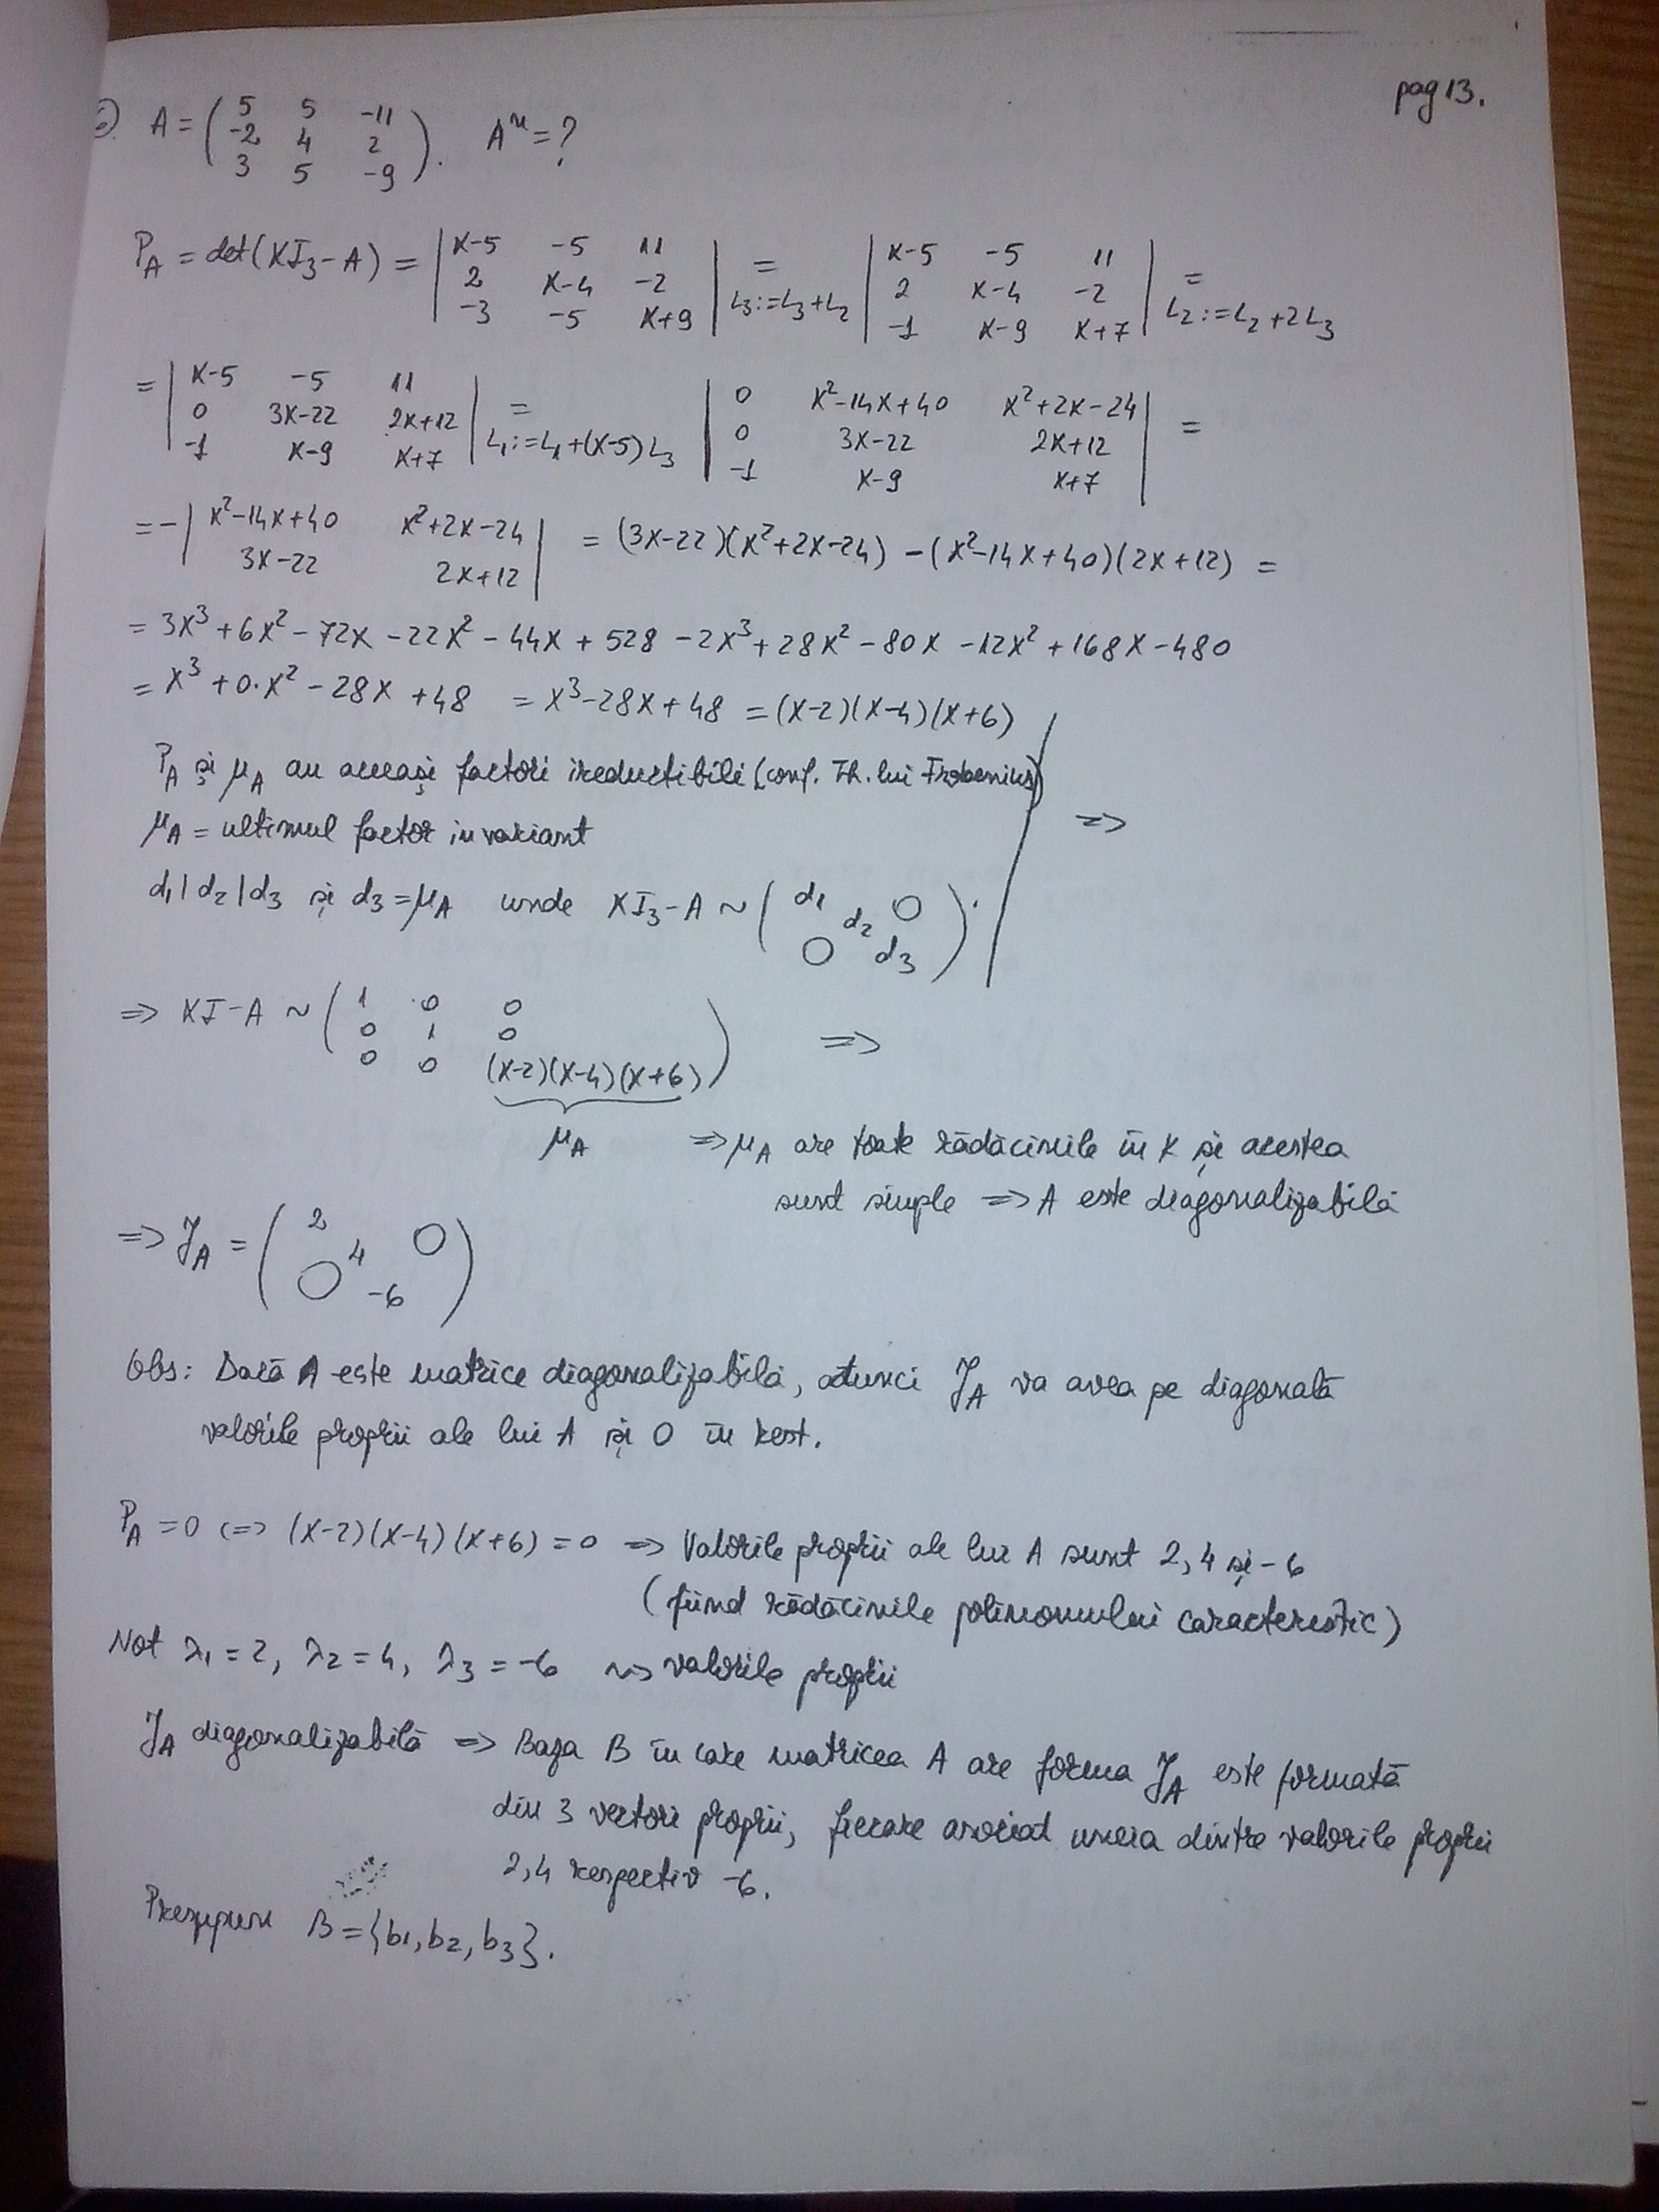 pag 13.
6). A = ( 5 5 -11
-2 4 2
3 5 -9 ). Aⁿ = ?
P_A = det(XI₃ - A) = | X-5 -5 11 | = | X-5 -5 11 | =
2 X-4 -2 L₃:=L₃+L₂ 2 X-4 -2 L₂:=L₂+2L₃
-3 -5 X+9 -1 X-9 X+7
= | X-5 -5 11 | = | 0 X²-14X+40 X²+2X-24 | =
0 3X-22 2X+12 L₁:=L₁+(X-5)L₃ 0 3X-22 2X+12
-1 X-9 X+7 -1 X-9 X+7
= - | X²-14X+40 X²+2X-24 | = (3X-22)(X²+2X-24) - (X²-14X+40)(2X+12) =
3X-22 2X+12
= 3X³ + 6X² - 72X - 22X² - 44X + 528 - 2X³ + 28X² - 80X - 12X² + 168X - 480
= X³ + 0·X² - 28X + 48 = X³ - 28X + 48 = (X-2)(X-4)(X+6)
P_A și μ_A au aceeași factori ireductibili (conf. Th. lui Frobenius)
μ_A = ultimul factor invariant =>
d₁ | d₂ | d₃ și d₃ = μ_A unde XI₃ - A ~ ( d₁ d₂ 0
0 d₃ ).
=> XI - A ~ ( 1 0 0
0 1 0 =>
0 0 (X-2)(X-4)(X+6) )
μ_A => μ_A are toate rădăcinile în K și acestea
sunt simple => A este diagonalizabilă
=> J_A = ( 2 4 0
0 -6 )
Obs: Dacă A este matrice diagonalizabilă, atunci J_A va avea pe diagonală
valorile proprii ale lui A și 0 în rest.
P_A = 0 <=> (X-2)(X-4)(X+6) = 0 => Valorile proprii ale lui A sunt 2, 4 și -6
(fiind rădăcinile polinomului caracteristic)
Not λ₁ = 2, λ₂ = 4, λ₃ = -6 ~> valorile proprii
J_A diagonalizabilă => Baza B în care matricea A are forma J_A este formată
din 3 vectori proprii, fiecare asociat uneia dintre valorile proprii
2, 4 respectiv -6.
Presupun B = {b₁, b₂, b₃}.